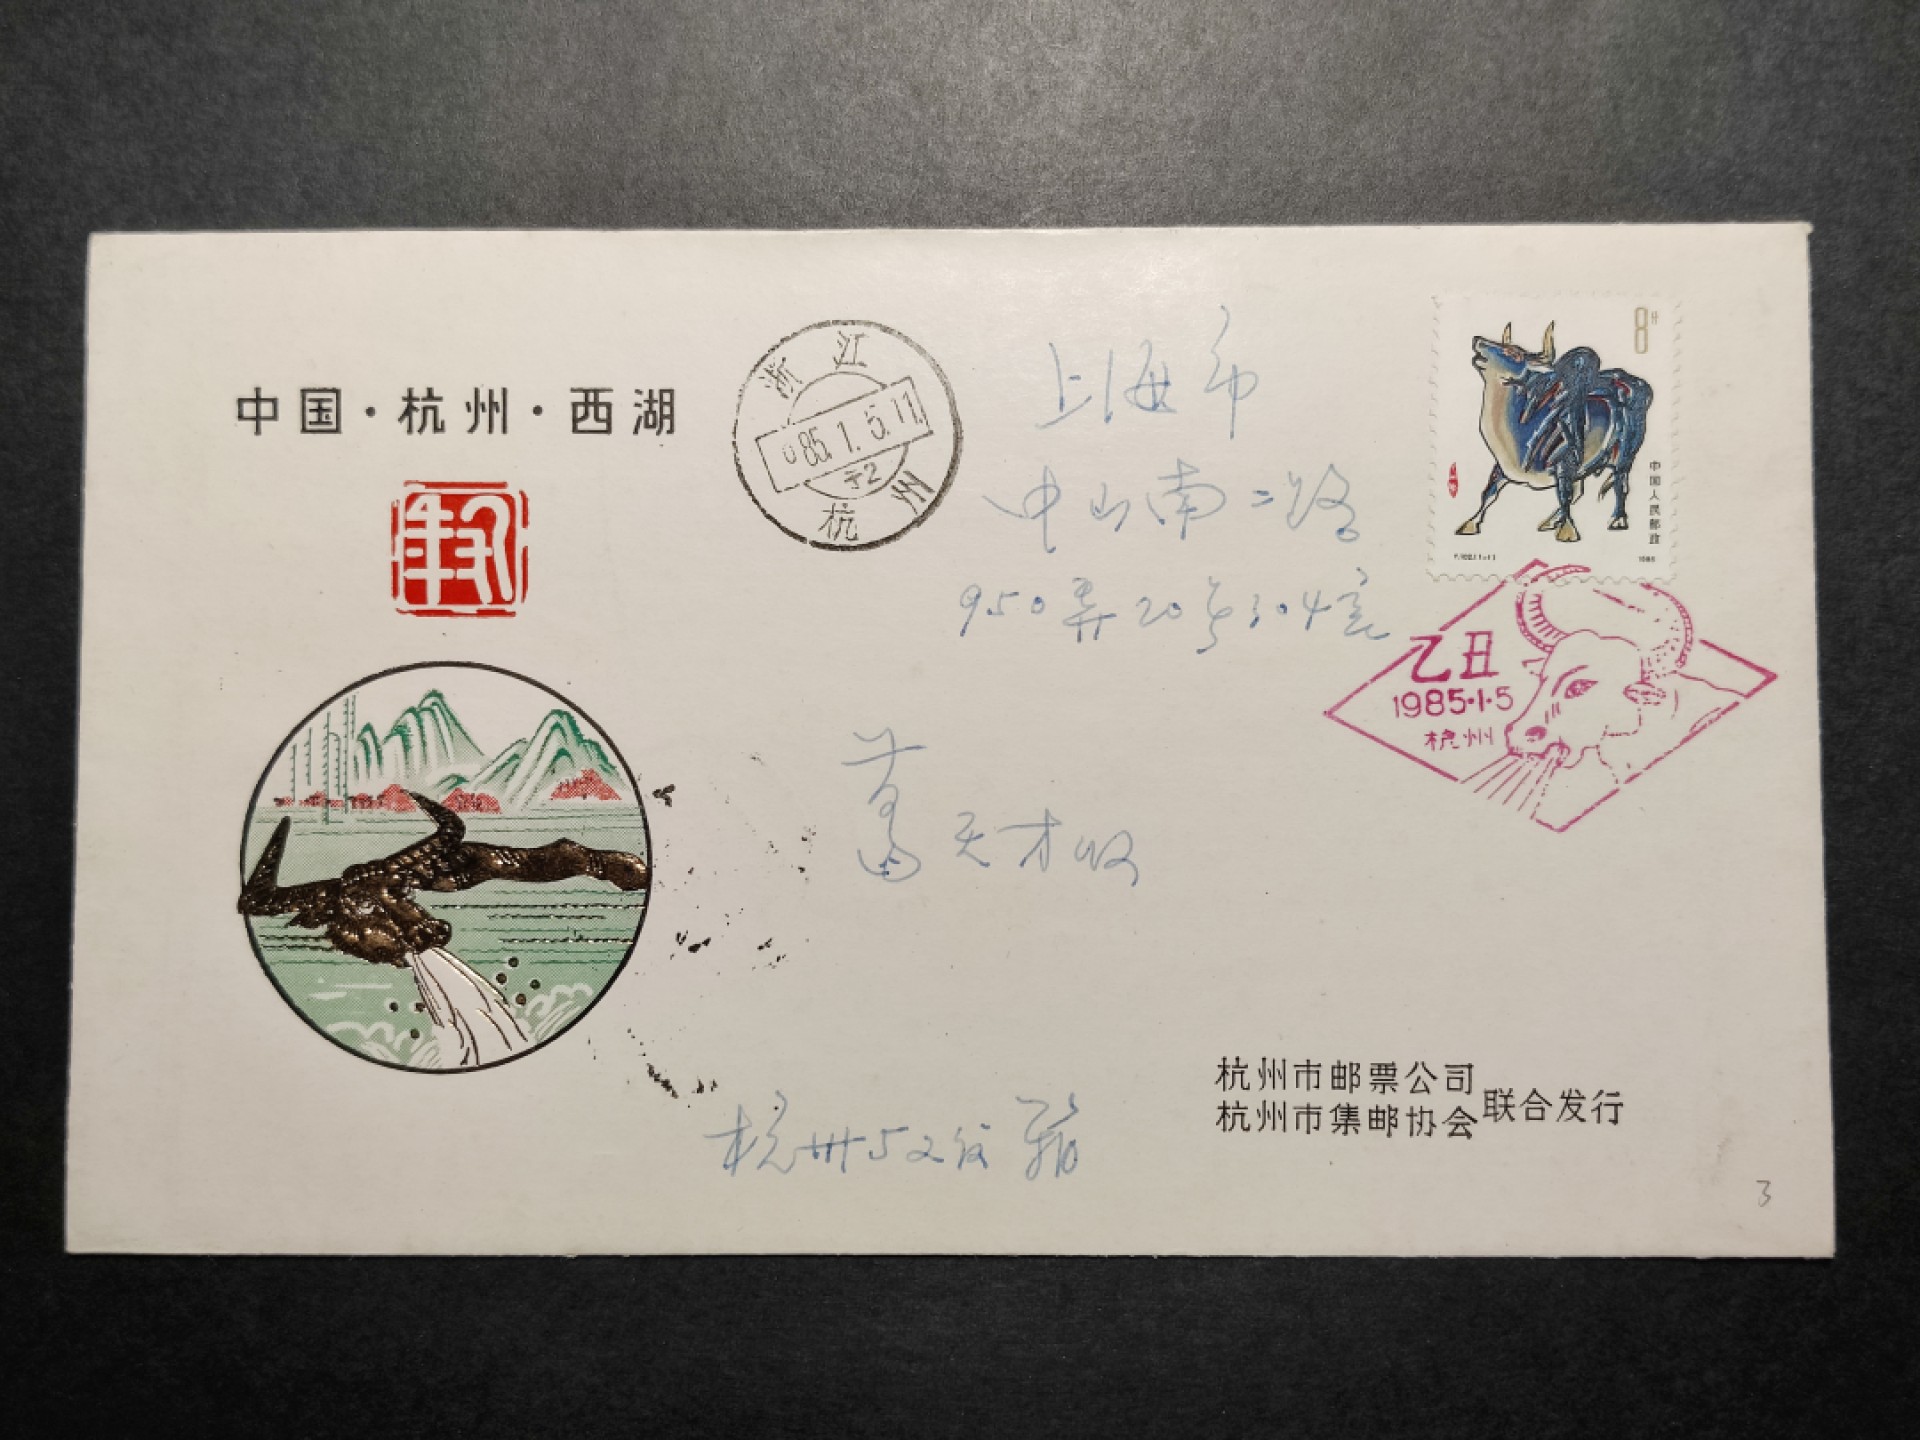 中国·杭州·西湖
浙江
85.1.5.11
杭州
上海市
中山南二路
950弄20号304室
8分
中国人民邮政
T.102.(1-1)
1985
乙丑
1985·1·5
杭州
天才收
杭州
杭州市邮票公司
杭州市集邮协会
联合发行
3